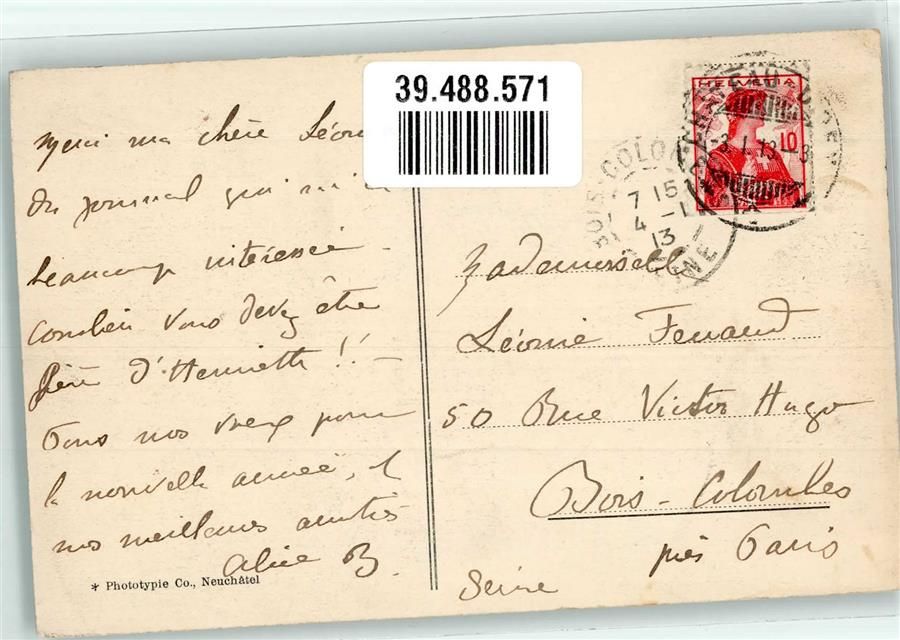 39.488.571
HELVETIA
10
-3.I.13-8
BOIS-COLO
7 15
4 -1
13
Merci ma chère Léon
du journal qui m'a
beaucoup intéressée.
Combien vous devez être
fière d'Henriette !! -
Tous nos vœux pour
la nouvelle année, et
nos meilleures amitiés
Alice B.
* Phototypie Co., Neuchâtel
Mademoiselle
Léonie
50 Rue Victor Hugo
Bois-Colombes
près Paris
Seine